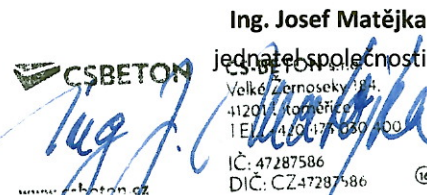 Ing. Josef Matějka
jednatel společnosti
CSBETON
CS-BETON s.r.o.
Velké Žernoseky 184,
412 01 Litoměřice
TEL.: +420 475 030 400
IČ: 47287586
DIČ: CZ47287586
Ing. J. Matějka